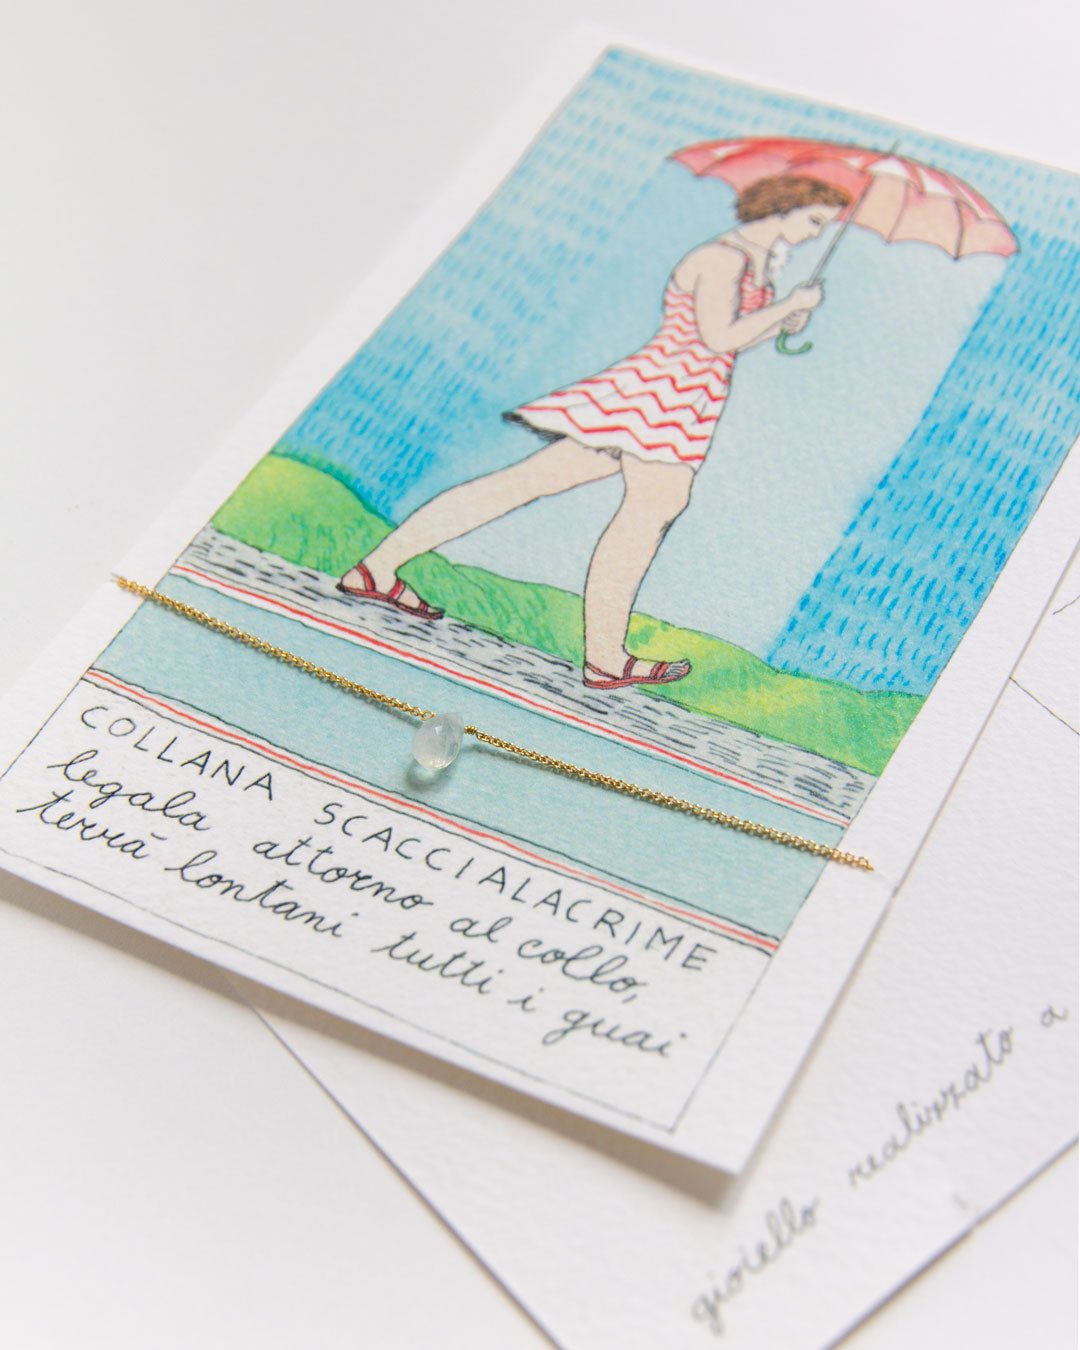 COLLANA SCACCIALACRIME
legala attorno al collo,
terrà lontani tutti i guai
gioiello realizzato a